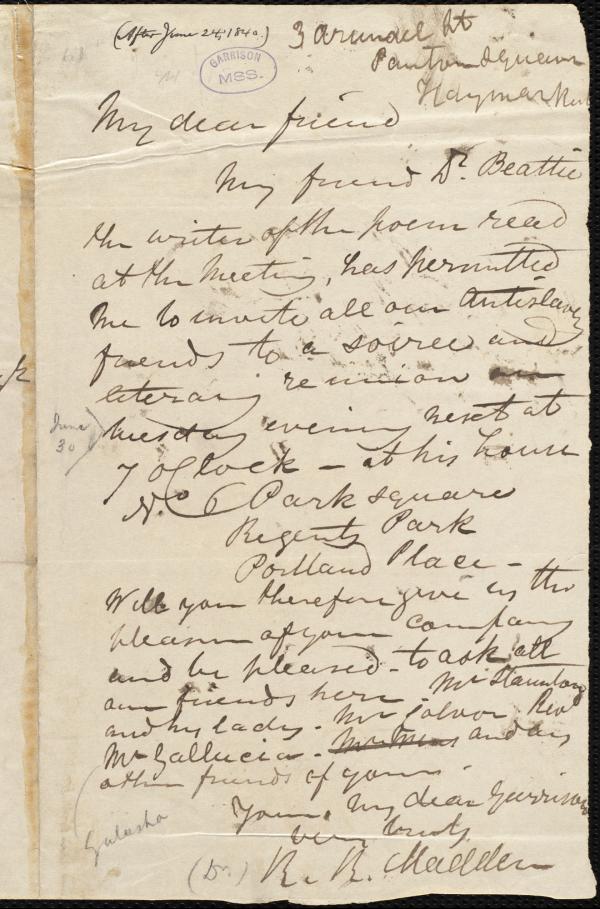 (After June 24, 1840.)
3 Arundel St
Panton Square
Haymarket
GARRISON
MSS.
My dear friend
My friend Dr. Beattie
the writer of the poem read
at the Meeting, has permitted
me to invite all our Antislavery
friends to a soiree and
literary reunion on
tuesday evening next at
June
30
7 o'Clock - at his house
No. 6 Park square
Regents Park
Portland Place -
Will you therefore give us the
pleasure of your company
and be pleased - to ask all
our friends here - Mr Stanton
and his lady - Mr Colver Revd
Mr Gallucia - and any
other friends of yours -
Galusha
Yours, my dear Garrison
very truly
(Dr.) R. R. Madden